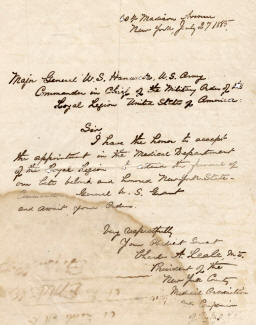 604 Madison Avenue
New York July 27 1885.
Major General W. S. Hancock, U. S. Army
Commander in Chief of the Military Order of the
Loyal Legion United States of America:
Sir
I have the honor to accept
the appointment in the Medical Department
of the Loyal Legion to attend the funeral of
our late beloved and honored
General U. S. Grant
and await your Orders.
Very respectfully
Your Obedient Servt
Charles A. Leale M.D.
President of the
New York County
Medical Association
and Companion